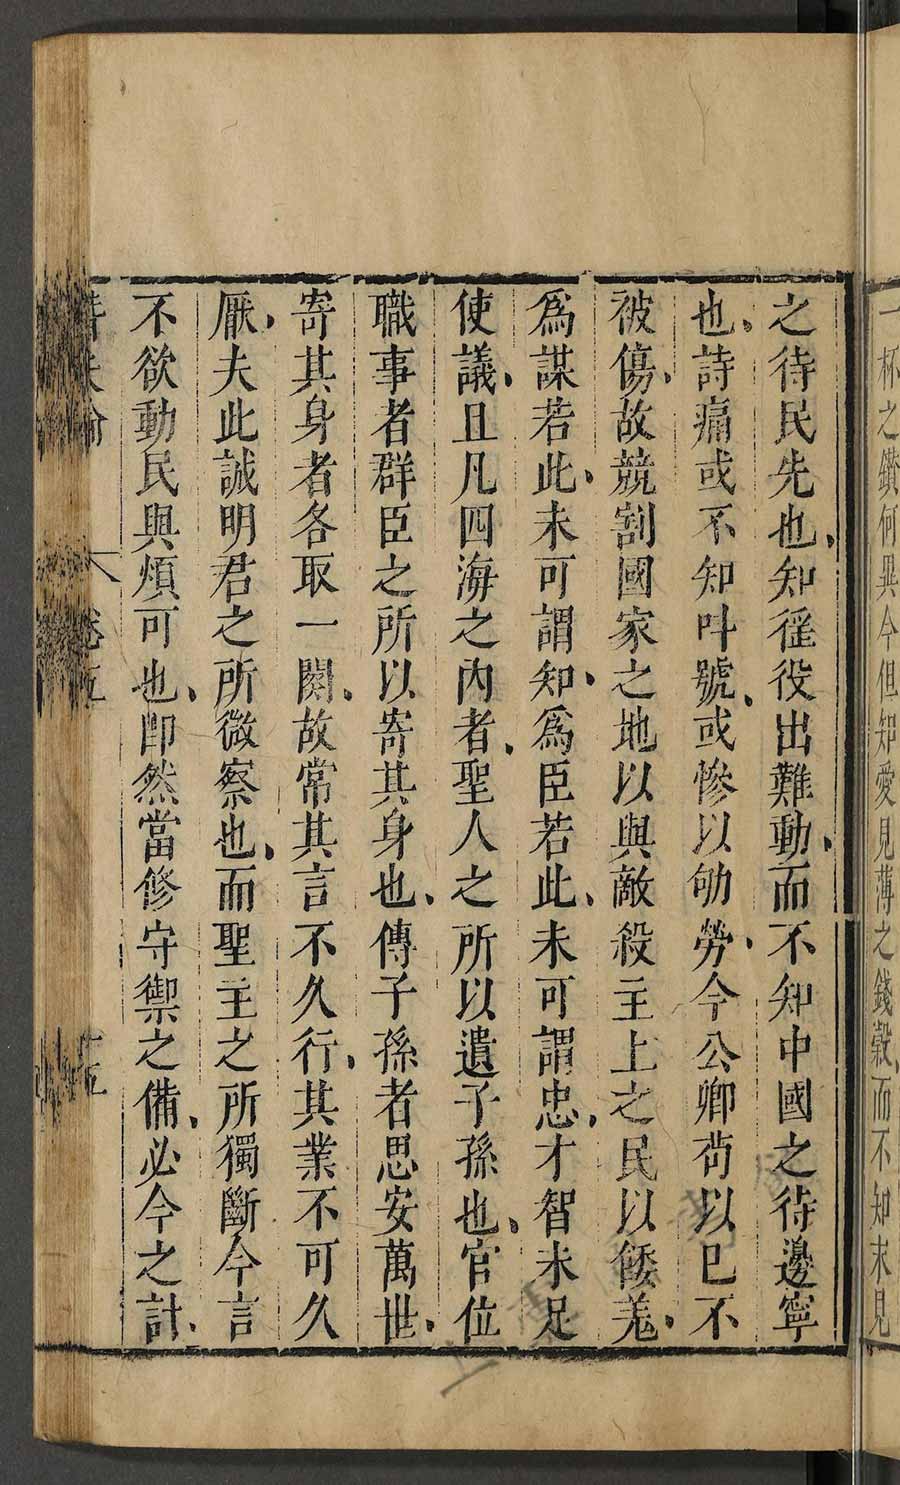 一杯之鑽何異今但知愛見薄之錢穀而不知未見
之待民先也知徭役出難動而不知中國之待邊寧
也詩痛或不知叫號或慘以劬勞今公卿苟以已不
被傷故競割國家之地以與敵殺主上之民以餧羗
爲謀若此未可謂知爲臣若此未可謂忠才智未足
使議且凡四海之内者聖人之所以遺子孫也官位
職事者群臣之所以寄其身也傳子孫者思安萬世
寄其身者各取一闋故常其言不久行其業不可久
厭夫此誠明君之所微察也而聖主之所獨斷今言
不欲動民與煩可也即然當修守禦之備必今之計
卷五
十五